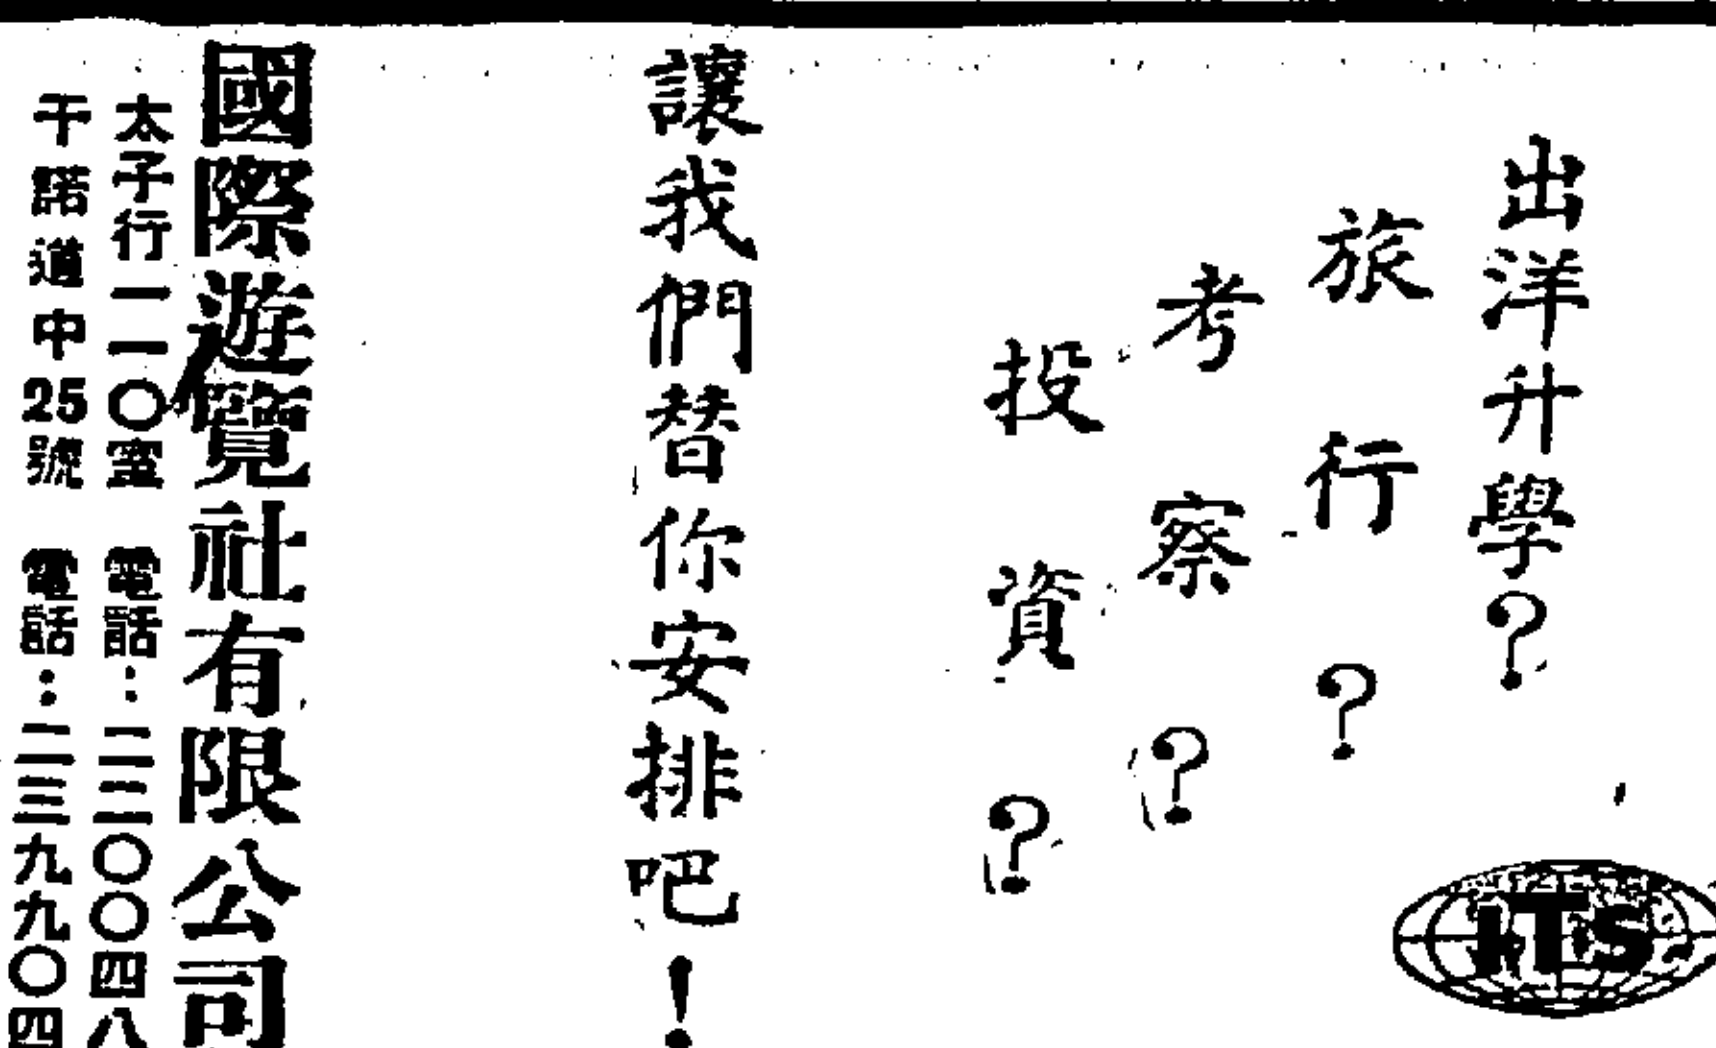 出洋升學?
旅行?
考察?
投資?
讓我們替你安排吧!
國際遊覽社有限公司
太子行一一〇室 電話:二二〇〇四八
干諾道中25號 電話:二三九九〇四
ITS